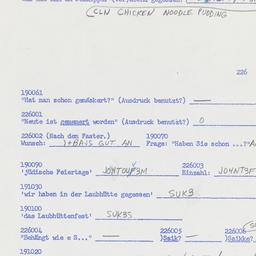 (CLN CHICKEN NOODLE PUDDING
226
190061
"Hat man schon gemäskert?" (Ausdruck benutzt?) —
226001
"Heute ist gemauert worden" (Ausdruck benutzt?) O
226002 (Nach dem Faster.) 190070
Wunsch: )+BAIS GUT AN Frage: "Haben Sie schon ...?"
190090 226003
'jüdische Feiertage' Einzahl:
191030
'wir haben in der Laubhütte gegessen' SUK3
190100
'das Laubhüttenfest' SUK3S
226004 226005 226006
"Behängt wie e S..." — )Saik? — )Saikke?
191020